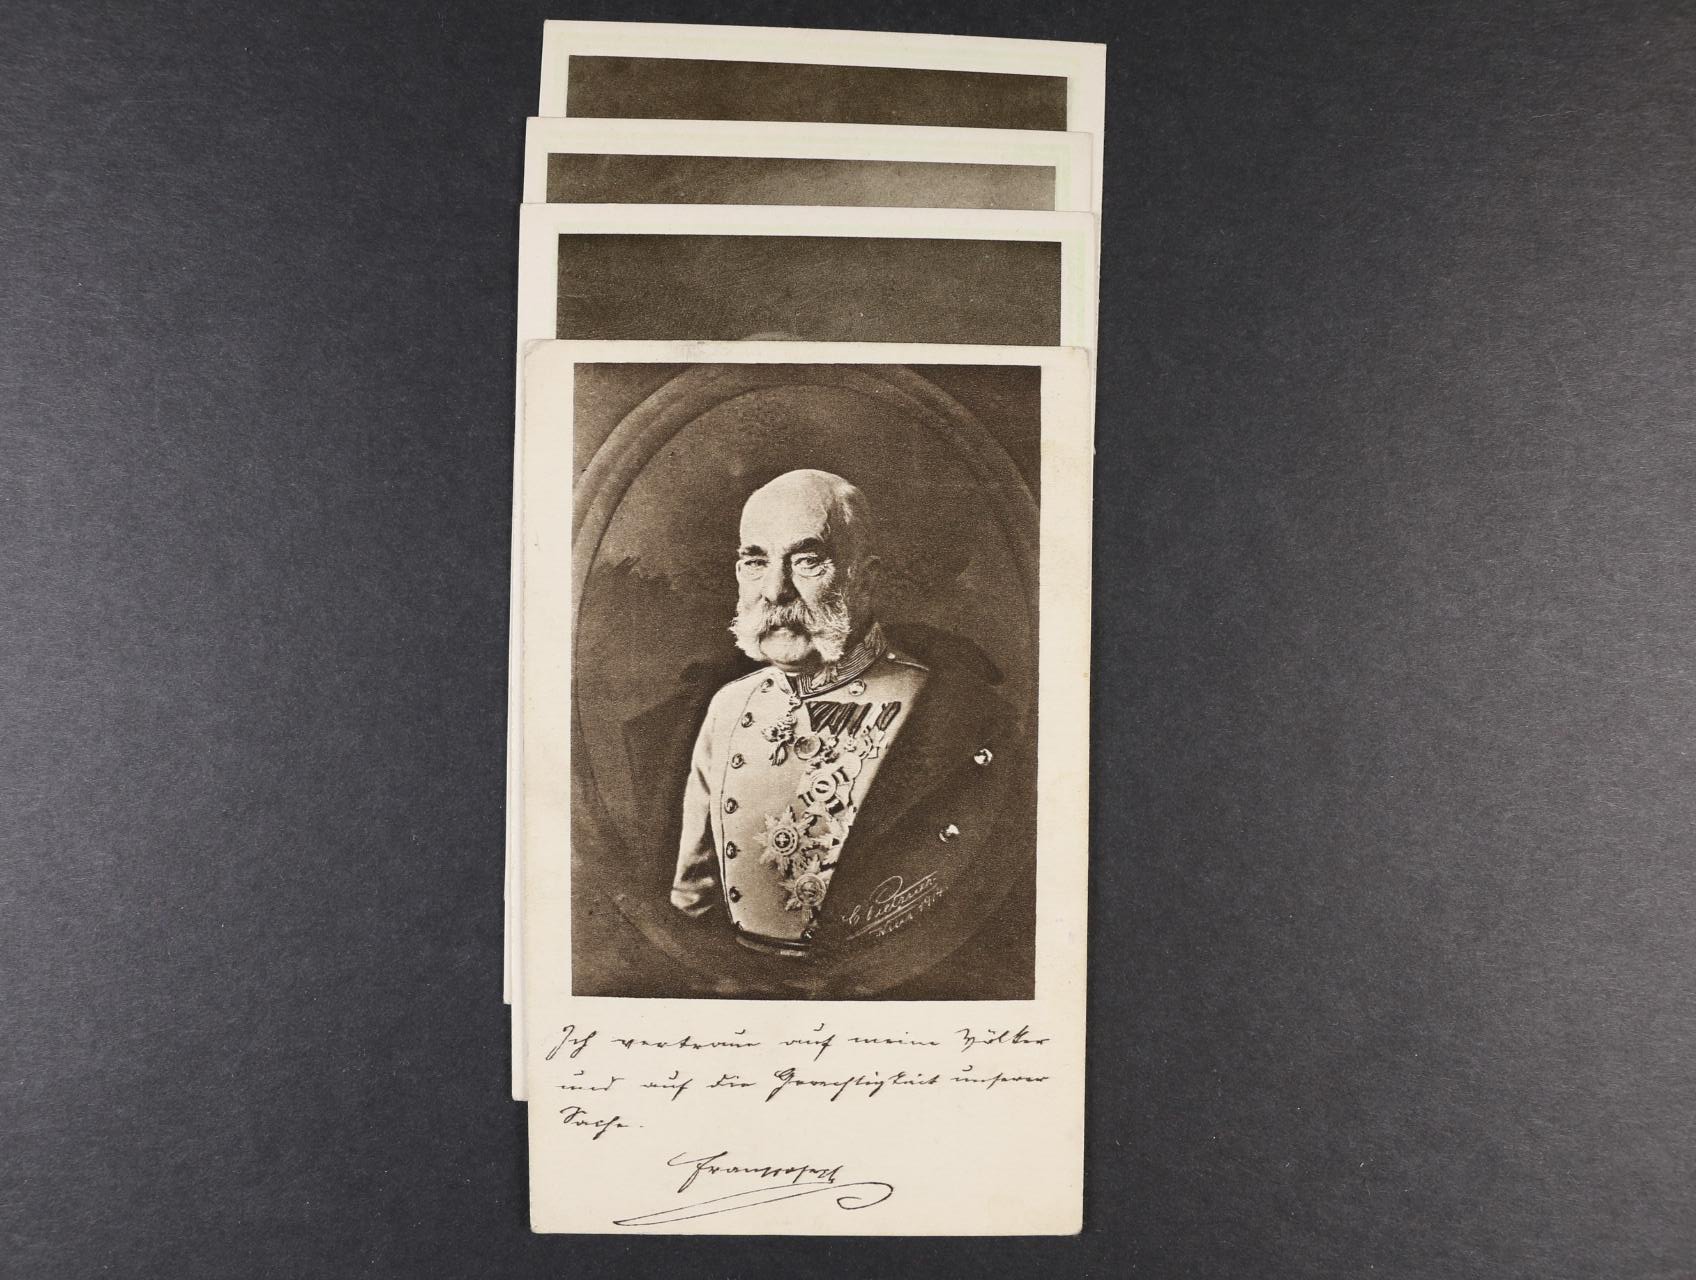 C Pietzner
Wien 1914
Ich vertraue auf meine Völker
und auf die Gerechtigkeit unserer
Sache.
Franz Joseph